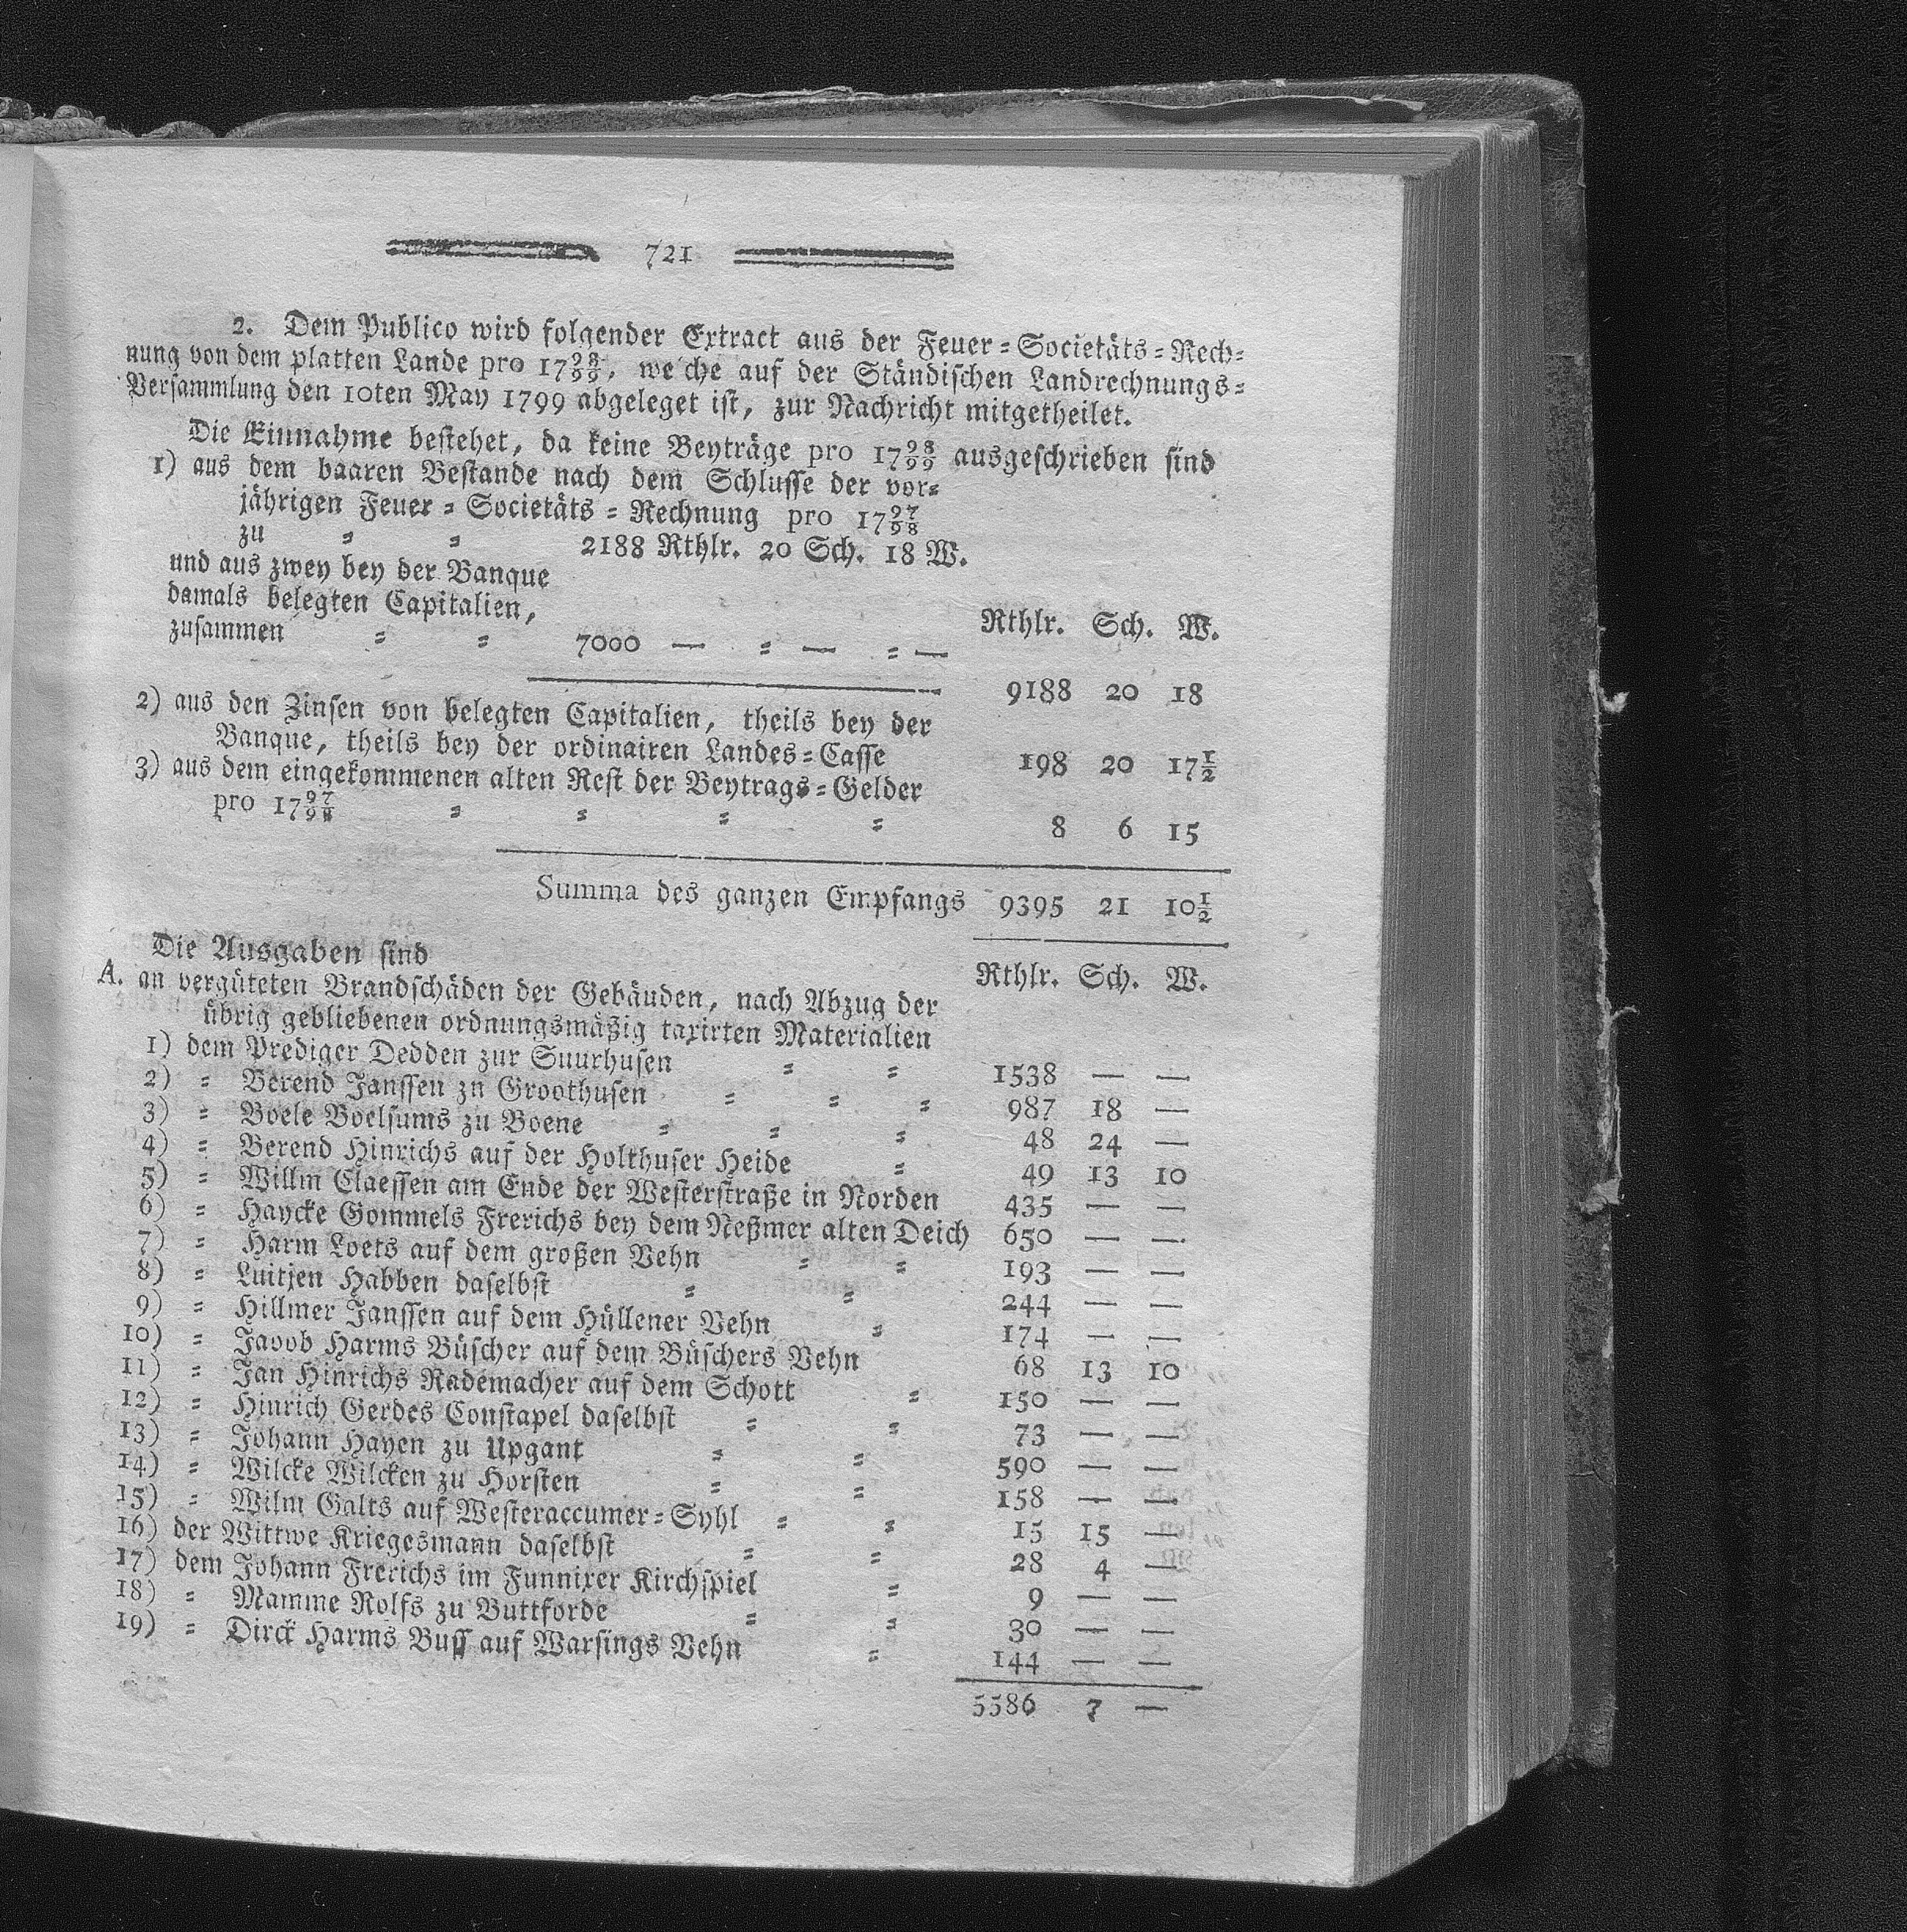 721
2. Dem Publico wird folgender Extract aus der Feuer=Societäts=Rech=
nung von dem platten Lande pro 17 98/99, we'che auf der Ständischen Landrechnungs=
Versammlung den 10ten May 1799 abgeleget ist, zur Nachricht mitgetheilet.
Die Einnahme bestehet, da keine Beyträge pro 17 98/99 ausgeschrieben sind
1) aus dem baaren Bestande nach dem Schlusse der vor=
jährigen Feuer=Societäts=Rechnung pro 17 97/98
zu = = 2188 Rthlr. 20 Sch. 18 W.
und aus zwey bey der Banque
damals belegten Capitalien,
Rthlr. Sch. W.
zusammen = = 7000 — = — = —
9188 20 18
2) aus den Zinsen von belegten Capitalien, theils bey der
Banque, theils bey der ordinairen Landes=Casse 198 20 17½
3) aus dem eingekommenen alten Rest der Beytrags=Gelder
pro 17 97/98 = = = = 8 6 15
Summa des ganzen Empfangs 9395 21 10½
Die Ausgaben sind
Rthlr. Sch. W.
A. an vergüteten Brandschäden der Gebäuden, nach Abzug der
übrig gebliebenen ordnungsmäßig taxirten Materialien
1) dem Prediger Dedden zur Suurhusen = = 1538 — —
2) = Berend Janssen zu Groothusen = = = 987 18 —
3) = Boele Boelsums zu Boene = = = 48 24 —
4) = Berend Hinrichs auf der Holthuser Heide = 49 13 10
5) = Willm Claessen am Ende der Westerstraße in Norden 435 — —
6) = Haycke Gommels Frerichs bey dem Neßmer alten Deich 650 — —
7) = Harm Loets auf dem großen Vehn = = 193 — —
8) = Luitjen Habben daselbst = = 244 — —
9) = Hillmer Janssen auf dem Hüllener Vehn = 174 — —
10) = Jaoob Harms Büscher auf dem Büschers Vehn 68 13 10
11) = Jan Hinrichs Rademacher auf dem Schott = 150 — —
12) = Hinrich Gerdes Constapel daselbst = = 73 — —
13) = Johann Hayen zu Upgant = = 590 — —
14) = Wilcke Wilcken zu Horsten = = 158 — —
15) = Wilm Galts auf Westeraccumer=Syhl = = 15 15 —
16) der Wittwe Kriegesmann daselbst = = 28 4 —
17) dem Johann Frerichs im Funnixer Kirchspiel = 9 — —
18) = Mamme Rolfs zu Buttforde = = 30 — —
19) = Dirck Harms Buss auf Warsings Vehn = 144 — —
5586 7 —